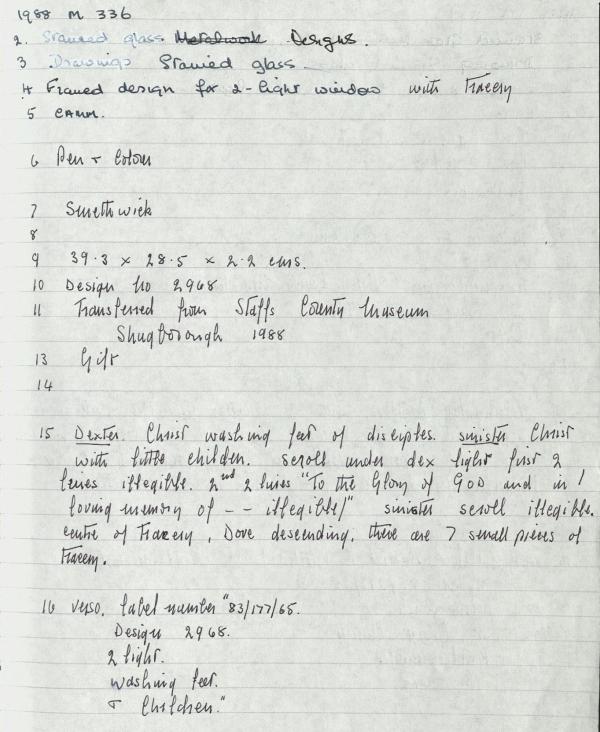 1988 M 336
2. Stained glass Metalwork Designs.
3 Drawings Stained glass
4 Framed design for 2-light window with Tracery
5 CAMM.
6 Pen & Colour
7 Smethwick
8
9 39.3 x 28.5 x 2.2 cms.
10 Design No 2968
11 Transferred from Staffs County Museum
Shugborough 1988
13 Gift
14
15 Dexter. Christ washing feet of disciples. sinister Christ
with little children. scroll under dex light first 2
lines illegible. 2nd 2 lines "To the Glory of GOD and in /
loving memory of - - illegible/" sinister scroll illegible.
centre of Tracery, Dove descending, there are 7 small pieces of
Tracery.
16 verso. label number "83/177/65.
Design 2968.
2 light.
washing feet.
& Children."